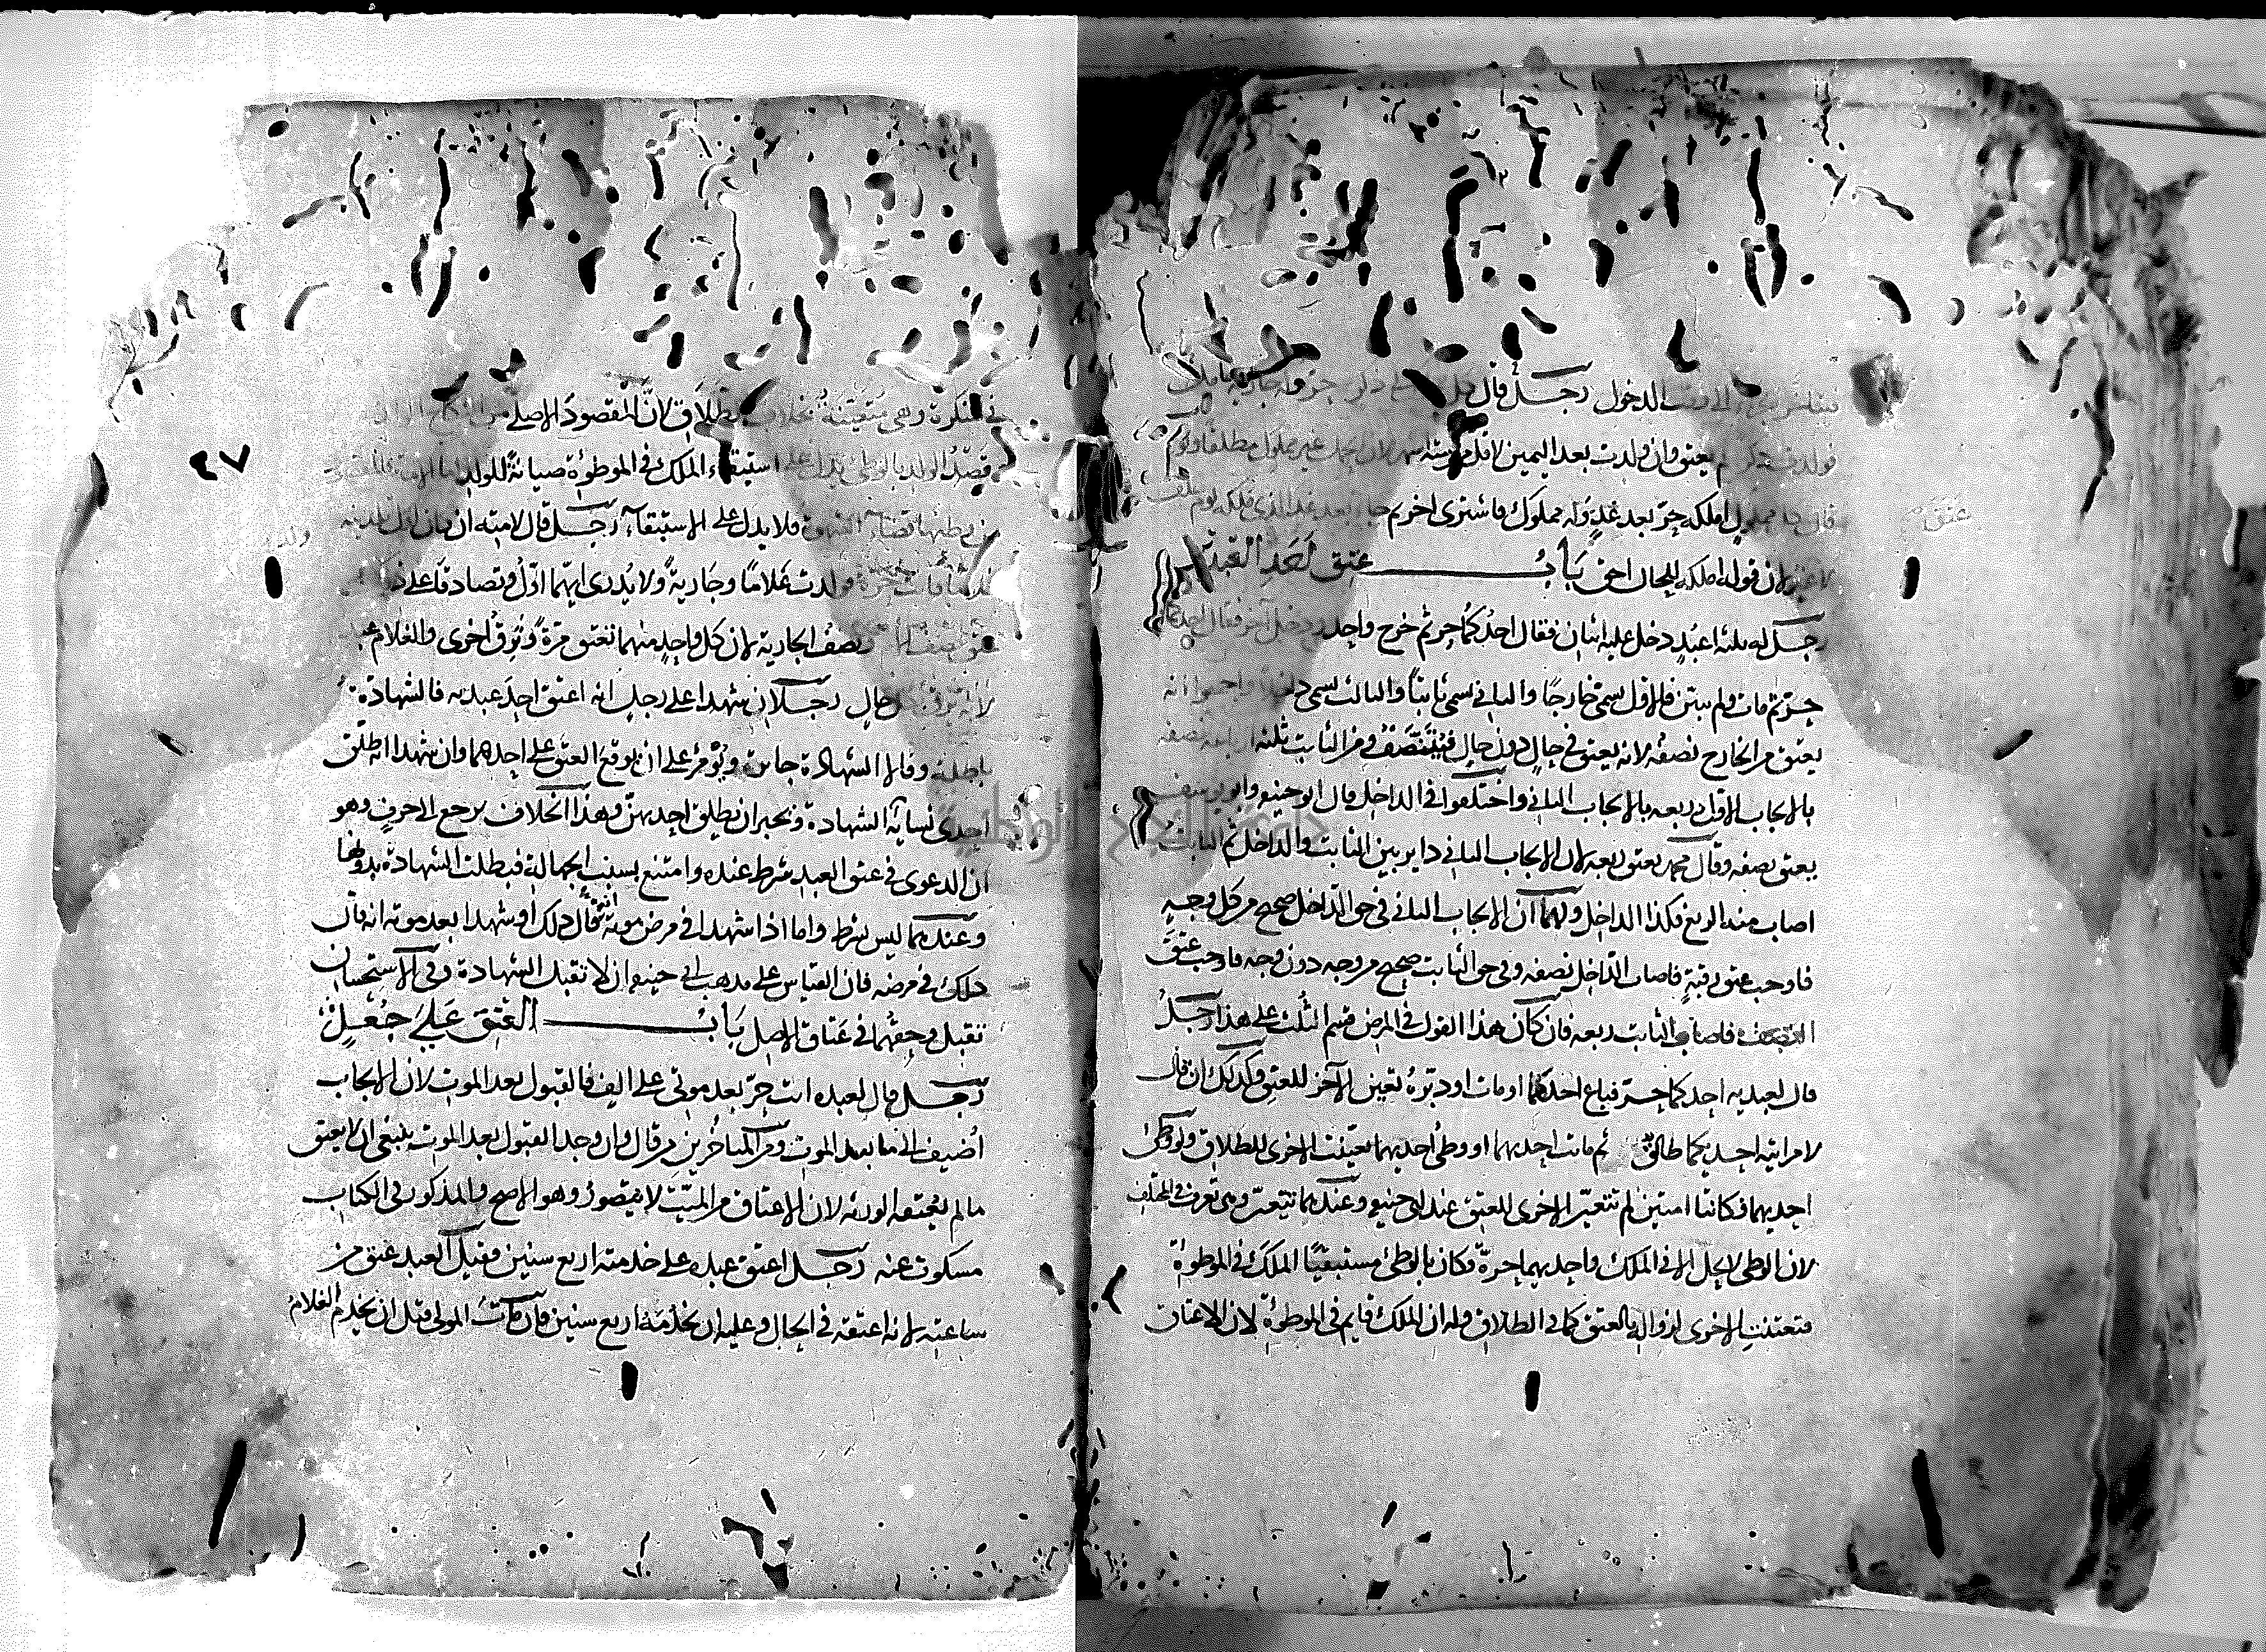 الدخول رجل قال حر وله جارية
فولدت ذكرا لم يعتق وان ولدت بعد اليمين لاقل من ستة غير مملوك مطلقا ولو
قال كل مملوك املكه حر بعد غد وله مملوك فاشترى اخر ثم جاء بعد غد الذي ملكه يوم حلف
عتق
لان قوله املكه للحال احق باب عتق احد العبدين
رجل له ثلثة اعبد دخل عليه اثنان فقال احدكما حر ثم خرج واحد ودخل آخر فقال احدكما
حر ثم مات ولم يبين فالاول يسمى خارجا والثاني يسمى ثابتا والثالث يسمى داخلا واجمعوا انه
يعتق من الخارج نصفه لانه يعتق في حال دون حال فيتنصف ومن الثابت ثلثة ارباعه نصفه
بالايجاب الاول وربعه بالايجاب الثاني واختلفوا في الداخل قال ابو حنيفة وابو يوسف
يعتق نصفه وقال محمد يعتق ربعه لان الايجاب الثاني داير بين الثابت والداخل ثم الثابت
اصاب منه الربع فكذا الداخل ولهما ان الايجاب الثاني في حق الداخل صحيح من كل وجه
فاوجب عتق رقبة فاصاب الداخل نصفه وفي حق الثابت صحيح من وجه دون وجه فاوجب عتق
النصف فاصاب الثابت ربعه فان كان هذا القول في المرض قسم الثلث على هذا رجل
قال لعبديه احدكما حر فباع احدهما او مات او دبره تعين الآخر للعتق وكذلك ان قال
لامراتيه احديكما طالق ثم ماتت احديهما او وطئ احديهما تعينت الاخرى للطلاق ولو وطئ
احديهما فكانتا امتين لم تتعين الاخرى للعتق عند ابي حنيفة وعندهما تتعين وهي تعرف في المختلف
لان الوطى لا يحل الا في الملك واحديهما حرة فكان بالوطئ مستبقيا الملك في الموطوة
فتعينت الاخرى لزواله بالعتق كما في الطلاق وله ان الملك قايم في الموطوة لان الاعتاق
٤٧
في المنكرة وهي متعينة بخلاف الطلاق لان المقصود الاصلي من النكاح الولد
قصد الولد بالوطى يدل على استبقاء الملك في الموطوة صيانة للولد اما الامة فالمقصود
من وطئها قضاء الشهوة فلا يدل على الاستبقاء رجل قال لامته ان كان اول ولد تلدينه
غلاما فانت حرة فولدت غلاما وجارية ولا يدرى ايهما اول وتصادقا على ذلك
عتق نصف الام ونصف الجارية لان كل واحد منهما تعتق مرة وترق اخرى والغلام عبد
لانه يرق بكل حال رجلان شهدا على رجل انه اعتق احد عبديه فالشهادة
باطلة وقالا الشهادة جايزة ويؤمر على ان يوقع العتق على احدهما وان شهدا انه طلق
احدى نسائه الشهادة ويجبر ان يطلق احديهن وهذا الخلاف يرجع الى حرف وهو
ان الدعوى في عتق العبد شرط عنده وامتنع بسبب الجهالة فبطلت الشهادة بدونها
وعندهما ليس بشرط واما اذا شهدا في مرض موته انه قال ذلك او شهدا بعد موته انه قال
ذلك في مرضه فان القياس على مذهب ابي حنيفة ان لا تقبل الشهادة وفي الاستحسان
تقبل وحقهما في عتاق الاصل باب العتق على جعل
رجل قال لعبده انت حر بعد موتي على الف فالقبول بعد الموت لان الايجاب
اضيف الى ما بعد الموت ومن المتأخرين من قال وان وجد القبول بعد الموت ينبغي ان لا يعتق
مالم يعتقه الورثة لان الاعتاق من الميت لا يتصور وهو الاصح والمذكور في الكتاب
مسكوت عنه رجل اعتق عبده على خدمته اربع سنين فقبل العبد عتق من
ساعته لانه اعتقه في الحال وعليه ان يخدمه اربع سنين فان مات المولى قبل ان يخدم الغلام